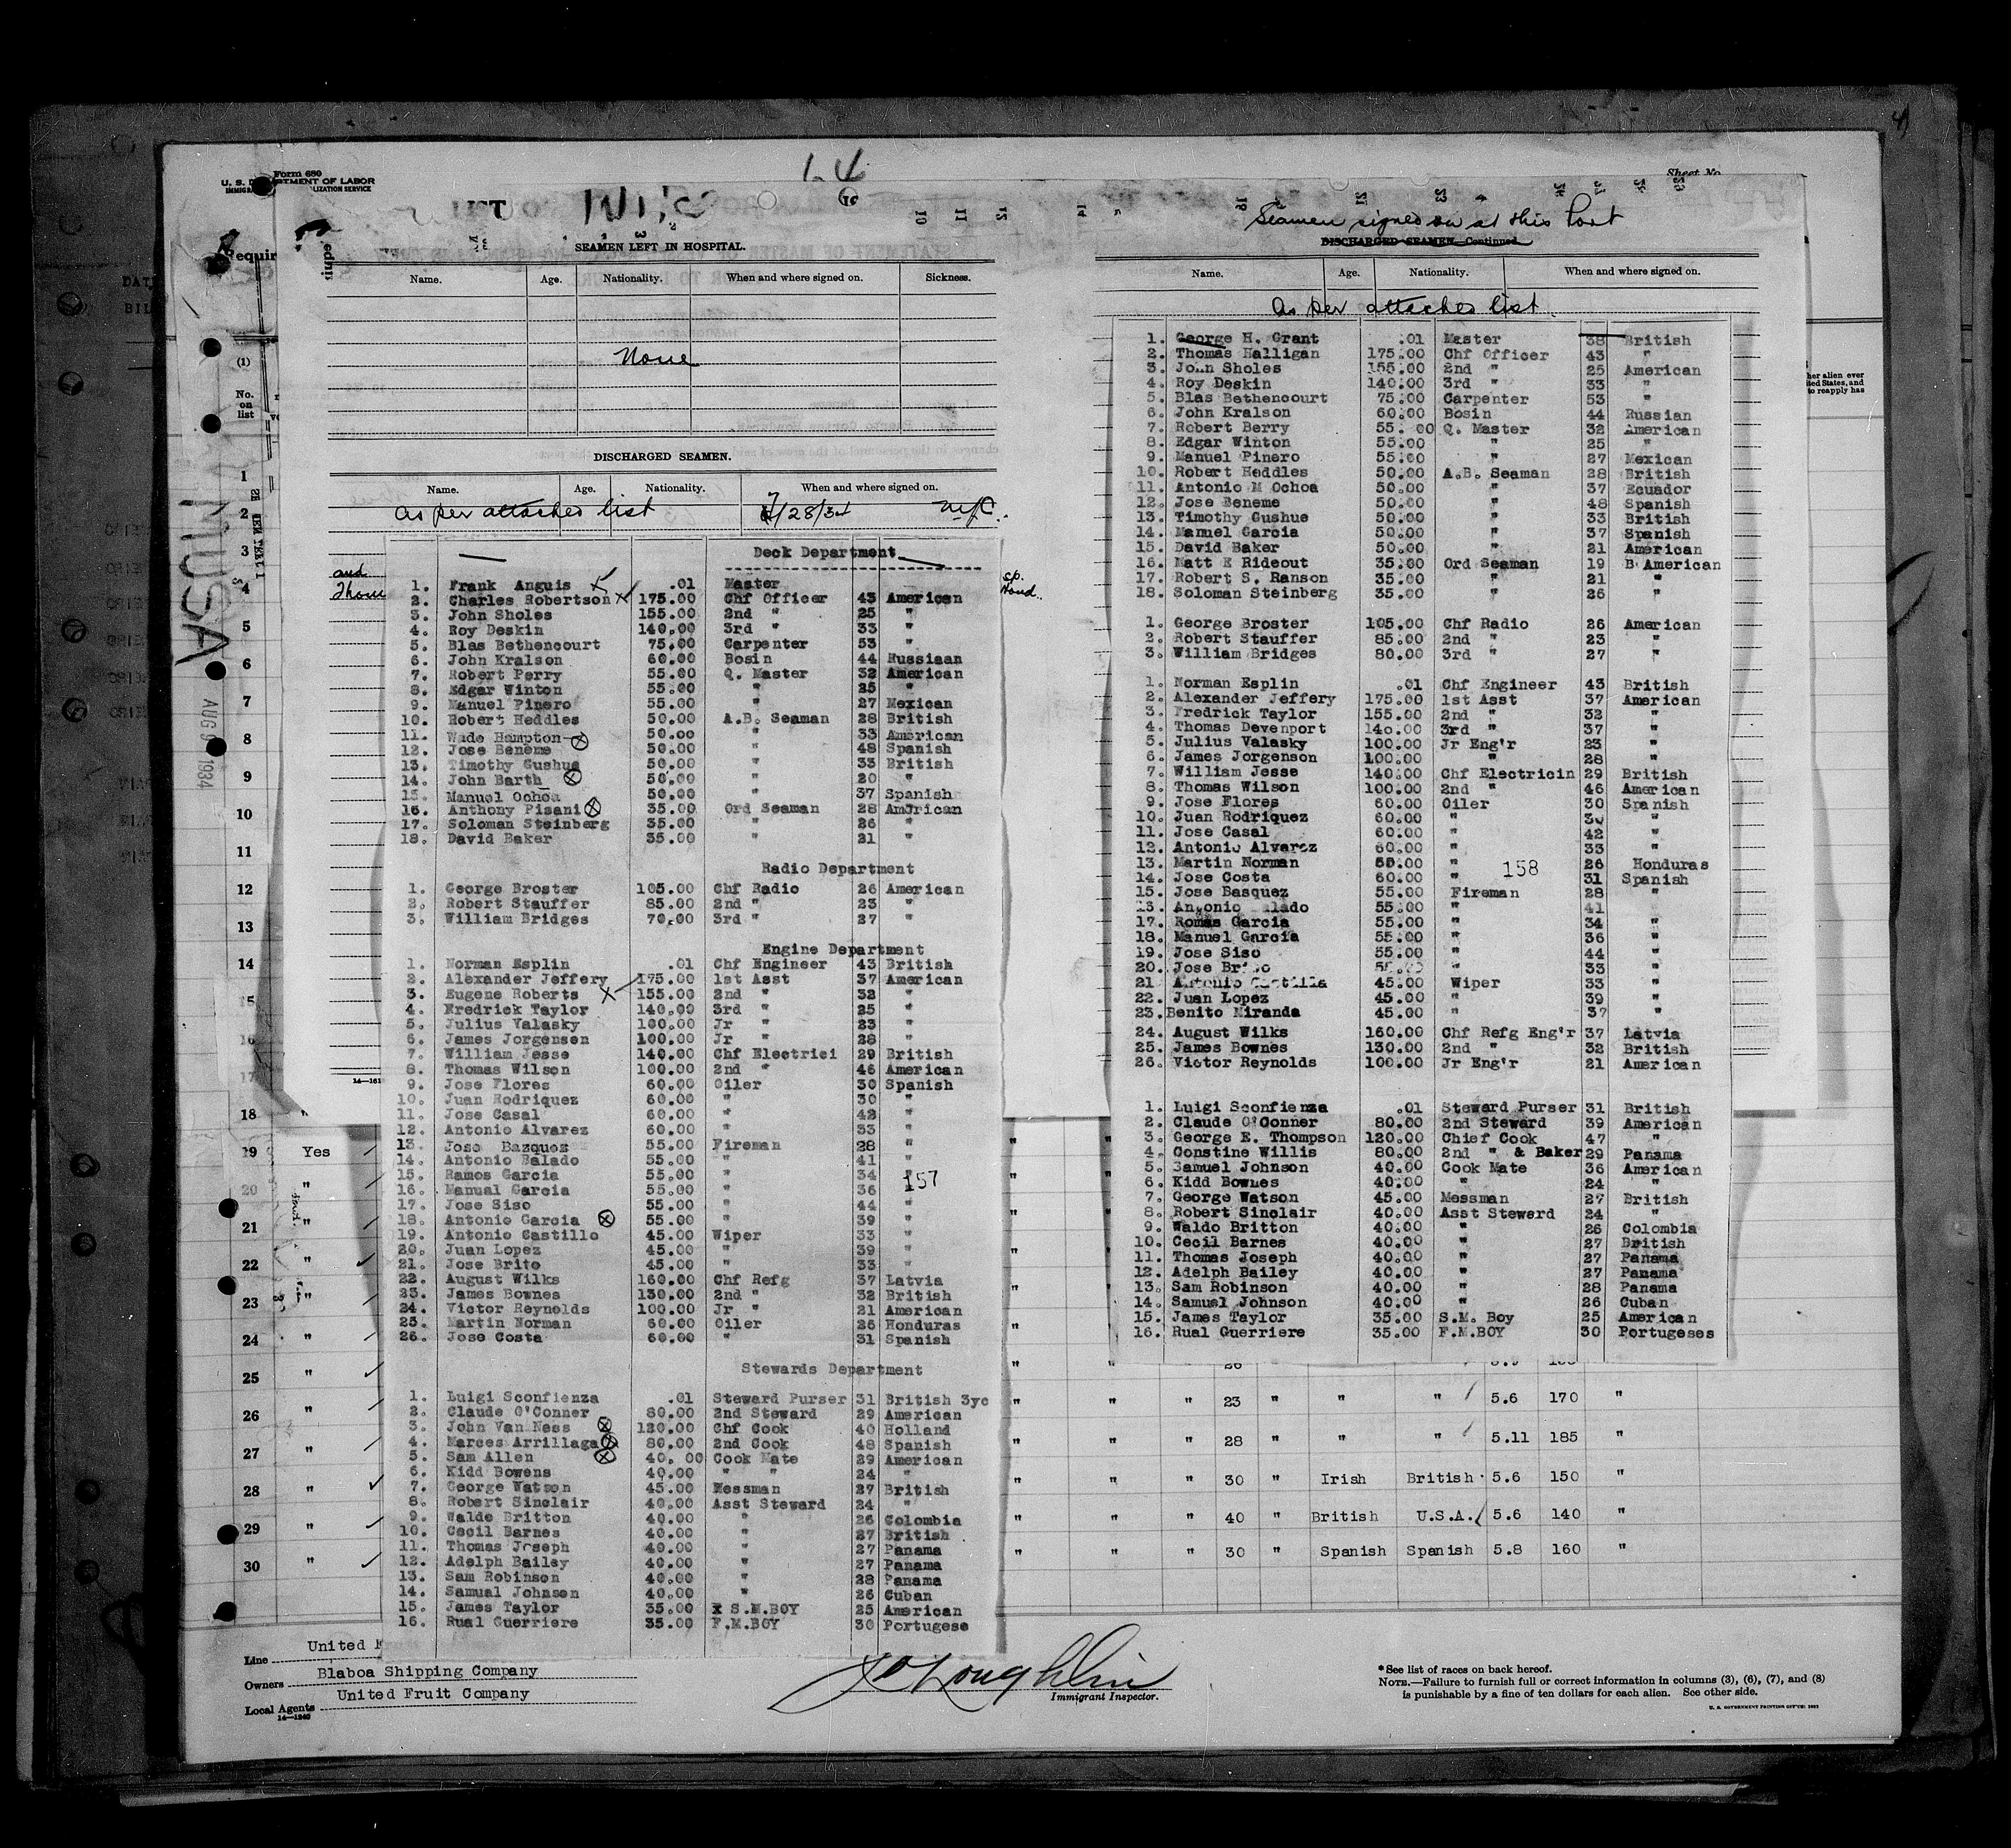 1-4
Form 680
U. S. DEPARTMENT OF LABOR
Sheet No.
LIST
SEAMEN LEFT IN HOSPITAL.
Name. Age. Nationality. When and where signed on. Sickness.
None
DISCHARGED SEAMEN.
Name. Age. Nationality. When and where signed on.
as per attached list 7/28/34
Deck Department
1. Frank Anguis .01 Master
2. Charles Robertson 175.00 Chf Officer 43 American
3. John Sholes 155.00 2nd " 25 "
4. Roy Deskin 140.00 3rd " 33 "
5. Blas Bethencourt 75.00 Carpenter 53 "
6. John Kralson 60.00 Bosin 44 Russiaan
7. Robert Perry 55.00 Q. Master 32 American
8. Edgar Winton 55.00 " 25 "
9. Manuel Pinero 55.00 " 27 Mexican
10. Robert Heddles 50.00 A.B. Seaman 28 British
11. Wade Hampton 50.00 " 33 American
12. Jose Beneme 50.00 " 48 Spanish
13. Timothy Gushue 50.00 " 33 British
14. John Barth 50.00 " 20 "
15. Manuel Ochoa 50.00 " 37 Spanish
16. Anthony Pisani 35.00 Ord Seaman 28 American
17. Soloman Steinberg 35.00 " 26 "
18. David Baker 35.00 " 21 "
Radio Department
1. George Broster 105.00 Chf Radio 26 American
2. Robert Stauffer 85.00 2nd " 23 "
3. William Bridges 70.00 3rd " 27 "
Engine Department
1. Norman Esplin .01 Chf Engineer 43 British
2. Alexander Jeffery 175.00 1st Asst 37 American
3. Eugene Roberts 155.00 2nd " 32 "
4. Fredrick Taylor 140.00 3rd " 25 "
5. Julius Valasky 100.00 Jr " 23 "
6. James Jorgensen 100.00 Jr " 28 "
7. William Jesse 140.00 Chf Electrici 29 British
8. Thomas Wilson 100.00 2nd " 46 American
9. Jose Flores 60.00 Oiler 30 Spanish
10. Juan Rodriquez 60.00 " 30 "
11. Jose Casal 60.00 " 42 "
12. Antonio Alvarez 60.00 " 33 "
13. Jose Bazquez 55.00 Fireman 28 "
14. Antonio Balado 55.00 " 41 "
15. Ramos Garcia 55.00 " 34 "
157
16. Manual Garcia 55.00 " 36 "
17. Jose Siso 55.00 " 44 "
18. Antonio Garcia 55.00 " 39 "
19. Antonio Castillo 45.00 Wiper 33 "
20. Juan Lopez 45.00 " 39 "
21. Jose Brito 45.00 " 33 "
22. August Wilks 160.00 Chf Refg 37 Latvia
23. James Bownes 130.00 2nd " 32 British
24. Victor Reynolds 100.00 Jr " 21 American
25. Martin Norman 60.00 Oiler 26 Honduras
26. Jose Costa 60.00 " 31 Spanish
Stewards Department
1. Luigi Sconfienza .01 Steward Purser 31 British 3yc
2. Claude O'Conner 80.00 2nd Steward 29 American
3. John Van Ness 120.00 Chf Cook 40 Holland
4. Marces Arrillaga 80.00 2nd Cook 48 Spanish
5. Sam Allen 40.00 Cook Mate 29 American
6. Kidd Bowens 40.00 " " 24 "
7. George Watson 45.00 Messman 27 British
8. Robert Sinclair 40.00 Asst Steward 24 "
9. Walde Britton 40.00 " 26 Colombia
10. Cecil Barnes 40.00 " 27 British
11. Thomas Joseph 40.00 " 27 Panama
12. Adelph Bailey 40.00 " 27 Panama
13. Sam Robinson 40.00 " 28 Panama
14. Samual Johnson 40.00 " 26 Cuban
15. James Taylor 35.00 X S.M.BOY 25 American
16. Rual Guerriere 35.00 F.M.BOY 30 Portugese
Seamen signed on at this Port
DISCHARGED SEAMEN—Continued
Name. Age. Nationality. When and where signed on.
As per attached list
1. George H. Grant .01 Master 38 British
2. Thomas Halligan 175.00 Chf Officer 43 "
3. John Sholes 155.00 2nd " 25 American
4. Roy Deskin 140.00 3rd " 33 "
5. Blas Bethencourt 75.00 Carpenter 53 "
6. John Kralson 60.00 Bosin 44 Russian
7. Robert Berry 55.00 Q. Master 32 American
8. Edgar Winton 55.00 " 25 "
9. Manuel Pinero 55.00 " 27 Mexican
10. Robert Heddles 50.00 A.B. Seaman 28 British
11. Antonio M Ochoa 50.00 " 37 Ecuador
12. Jose Beneme 50.00 " 48 Spanish
13. Timothy Gushue 50.00 " 33 British
14. Manuel Garcia 50.00 " 37 Spanish
15. David Baker 50.00 " 21 American
16. Matt E Rideout 35.00 Ord Seaman 19 B American
17. Robert S. Ranson 35.00 " 21 "
18. Soloman Steinberg 35.00 " 26 "
1. George Broster 105.00 Chf Radio 26 American
2. Robert Stauffer 85.00 2nd " 23 "
3. William Bridges 80.00 3rd " 27 "
1. Norman Esplin .01 Chf Engineer 43 British
2. Alexander Jeffery 175.00 1st Asst 37 American
3. Fredrick Taylor 155.00 2nd " 32 "
4. Thomas Devenport 140.00 3rd " 37 "
5. Julius Valasky 100.00 Jr Eng'r 23 "
6. James Jorgenson 100.00 " 28 "
7. William Jesse 140.00 Chf Electricin 29 British
8. Thomas Wilson 100.00 2nd " 46 American
9. Jose Flores 60.00 Oiler 30 Spanish
10. Juan Rodriquez 60.00 " 30 "
11. Jose Casal 60.00 " 42 "
12. Antonio Alvarez 60.00 " 33 "
13. Martin Norman 60.00 " 26 Honduras
158
14. Jose Costa 60.00 " 31 Spanish
15. Jose Basquez 55.00 Fireman 28 "
Antonio 55.00 " 41
17. Romas Garcia 55.00 " 34 "
18. Manuel Garcia 55.00 " 36 "
19. Jose Siso 55.00 " 44 "
20. Jose " 33 "
21 Antonio 45.00 Wiper 33 "
22. Juan Lopez 45.00 " 39 "
23. Benito Miranda 45.00 " 37 "
24. August Wilks 160.00 Chf Refg Eng'r 37 Latvia
25. James Bownes 130.00 2nd " 32 British
26. Victor Reynolds 100.00 Jr Eng'r 21 American
1. Luigi Sconfienza .01 Steward Purser 31 British
2. Claude O'Conner 80.00 2nd Steward 39 American
3. George E. Thompson 120.00 Chief Cook 47 "
4. Constine Willis 80.00 2nd " & Baker 29 Panama
5. Samuel Johnson 40.00 Cook Mate 36 American
6. Kidd Bownes 40.00 " 24 "
7. George Watson 45.00 Messman 27 British
8. Robert Sinclair 40.00 Asst Steward 24 "
9. Waldo Britton 40.00 " 26 Colombia
10. Cecil Barnes 40.00 " 27 British
11. Thomas Joseph 40.00 " 27 Panama
12. Adelph Bailey 40.00 " 27 Panama
13. Sam Robinson 40.00 " 28 Panama
14. Samuel Johnson 40.00 " 26 Cuban
15. James Taylor 35.00 S.M. Boy 25 American
16. Rual Guerriere 35.00 F.M.BOY 30 Portugeses
MUSA
AUG 9 1934
(1)
No. on list
1
2
3
4
5
6
7
8
9
10
11
12
13
14
15
16
17
18 "
19 Yes
20 "
21 "
22 "
23 "
24 "
25 "
26 " " " " 23 " " " 5.6 170 "
27 " " " " 28 " " " 5.11 185 "
28 " " " " 30 " Irish British 5.6 150 "
29 " " " " 40 " British U.S.A. 5.6 140 "
30 " " " " 30 " Spanish Spanish 5.8 160 "
Line United
Owners Blaboa Shipping Company
Local Agents United Fruit Company
14—1240
Immigrant Inspector.
*See list of races on back hereof.
NOTE.—Failure to furnish full or correct information in columns (3), (6), (7), and (8)
is punishable by a fine of ten dollars for each alien. See other side.